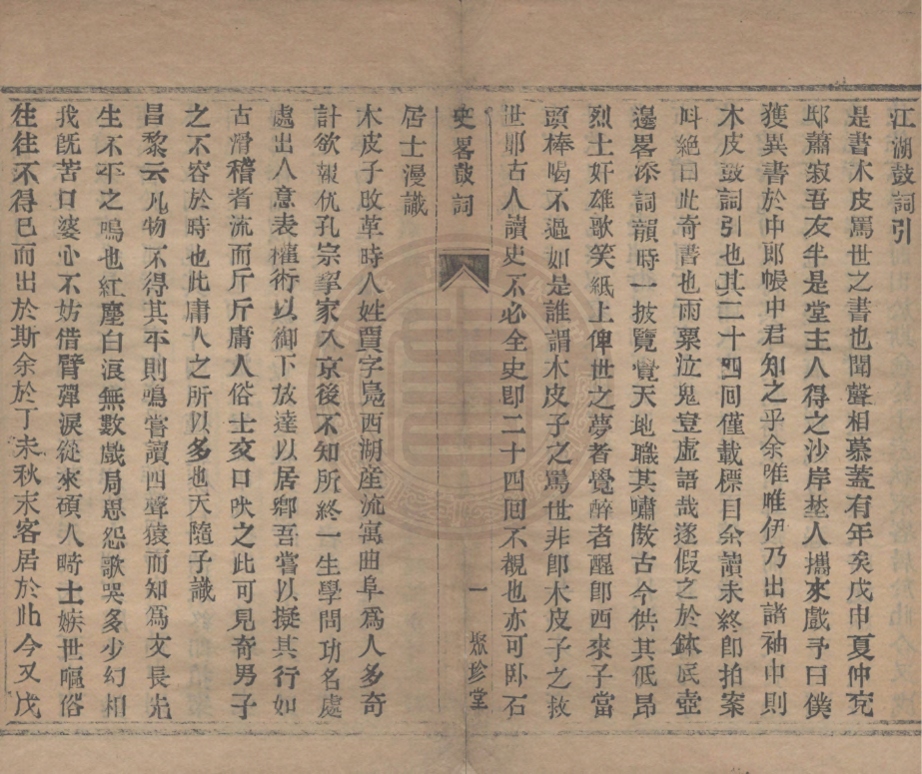 江湖鼓詞引
是書木皮罵世之書也聞聲相慕蓋有年矣戊申夏仲兗
邸蕭寂吾友半是堂主人得之沙岸埜人攜來戲予曰僕
獲異書於中郎帳中君知之乎余唯唯伊乃出諸袖中則
木皮鼓詞引也其二十四回僅載標目余讀未終卽拍案
呌絕曰此奇書也雨粟泣鬼豈虛語哉遂假之於鉢底壺
邊畧添詞韻時一披覽覺天地職其嘯傲古今供其低昂
烈士奸雄歌笑紙上俾世之夢者覺醉者醒卽西來子當
頭棒喝不過如是誰謂木皮子之罵世非卽木皮子之救
世耶古人讀史不必全史卽二十四囘不視也亦可卧石
史畧鼓詞
一
聚珍堂
居士漫識
木皮子改革時人姓賈字鳧西湖產流寓曲阜為人多奇
計欲報仇孔宗挈家入京後不知所終一生學問功名處
處出人意表權術以御下放達以居鄉吾嘗以擬其行如
古滑稽者流而斤斤庸人俗士交口吠之此可見奇男子
之不容於時也此庸人之所以多也天隨子識
昌黎云凡物不得其平則鳴嘗讀四聲猿而知為文長先
生不平之鳴也紅塵白浪無數戲局恩怨歌哭多少幻相
我旣苦口婆心不妨借臂彈淚從來碩人畸士嫉世嘔俗
徃徃不得已而出於斯余於丁未秋末客居於此今又戊